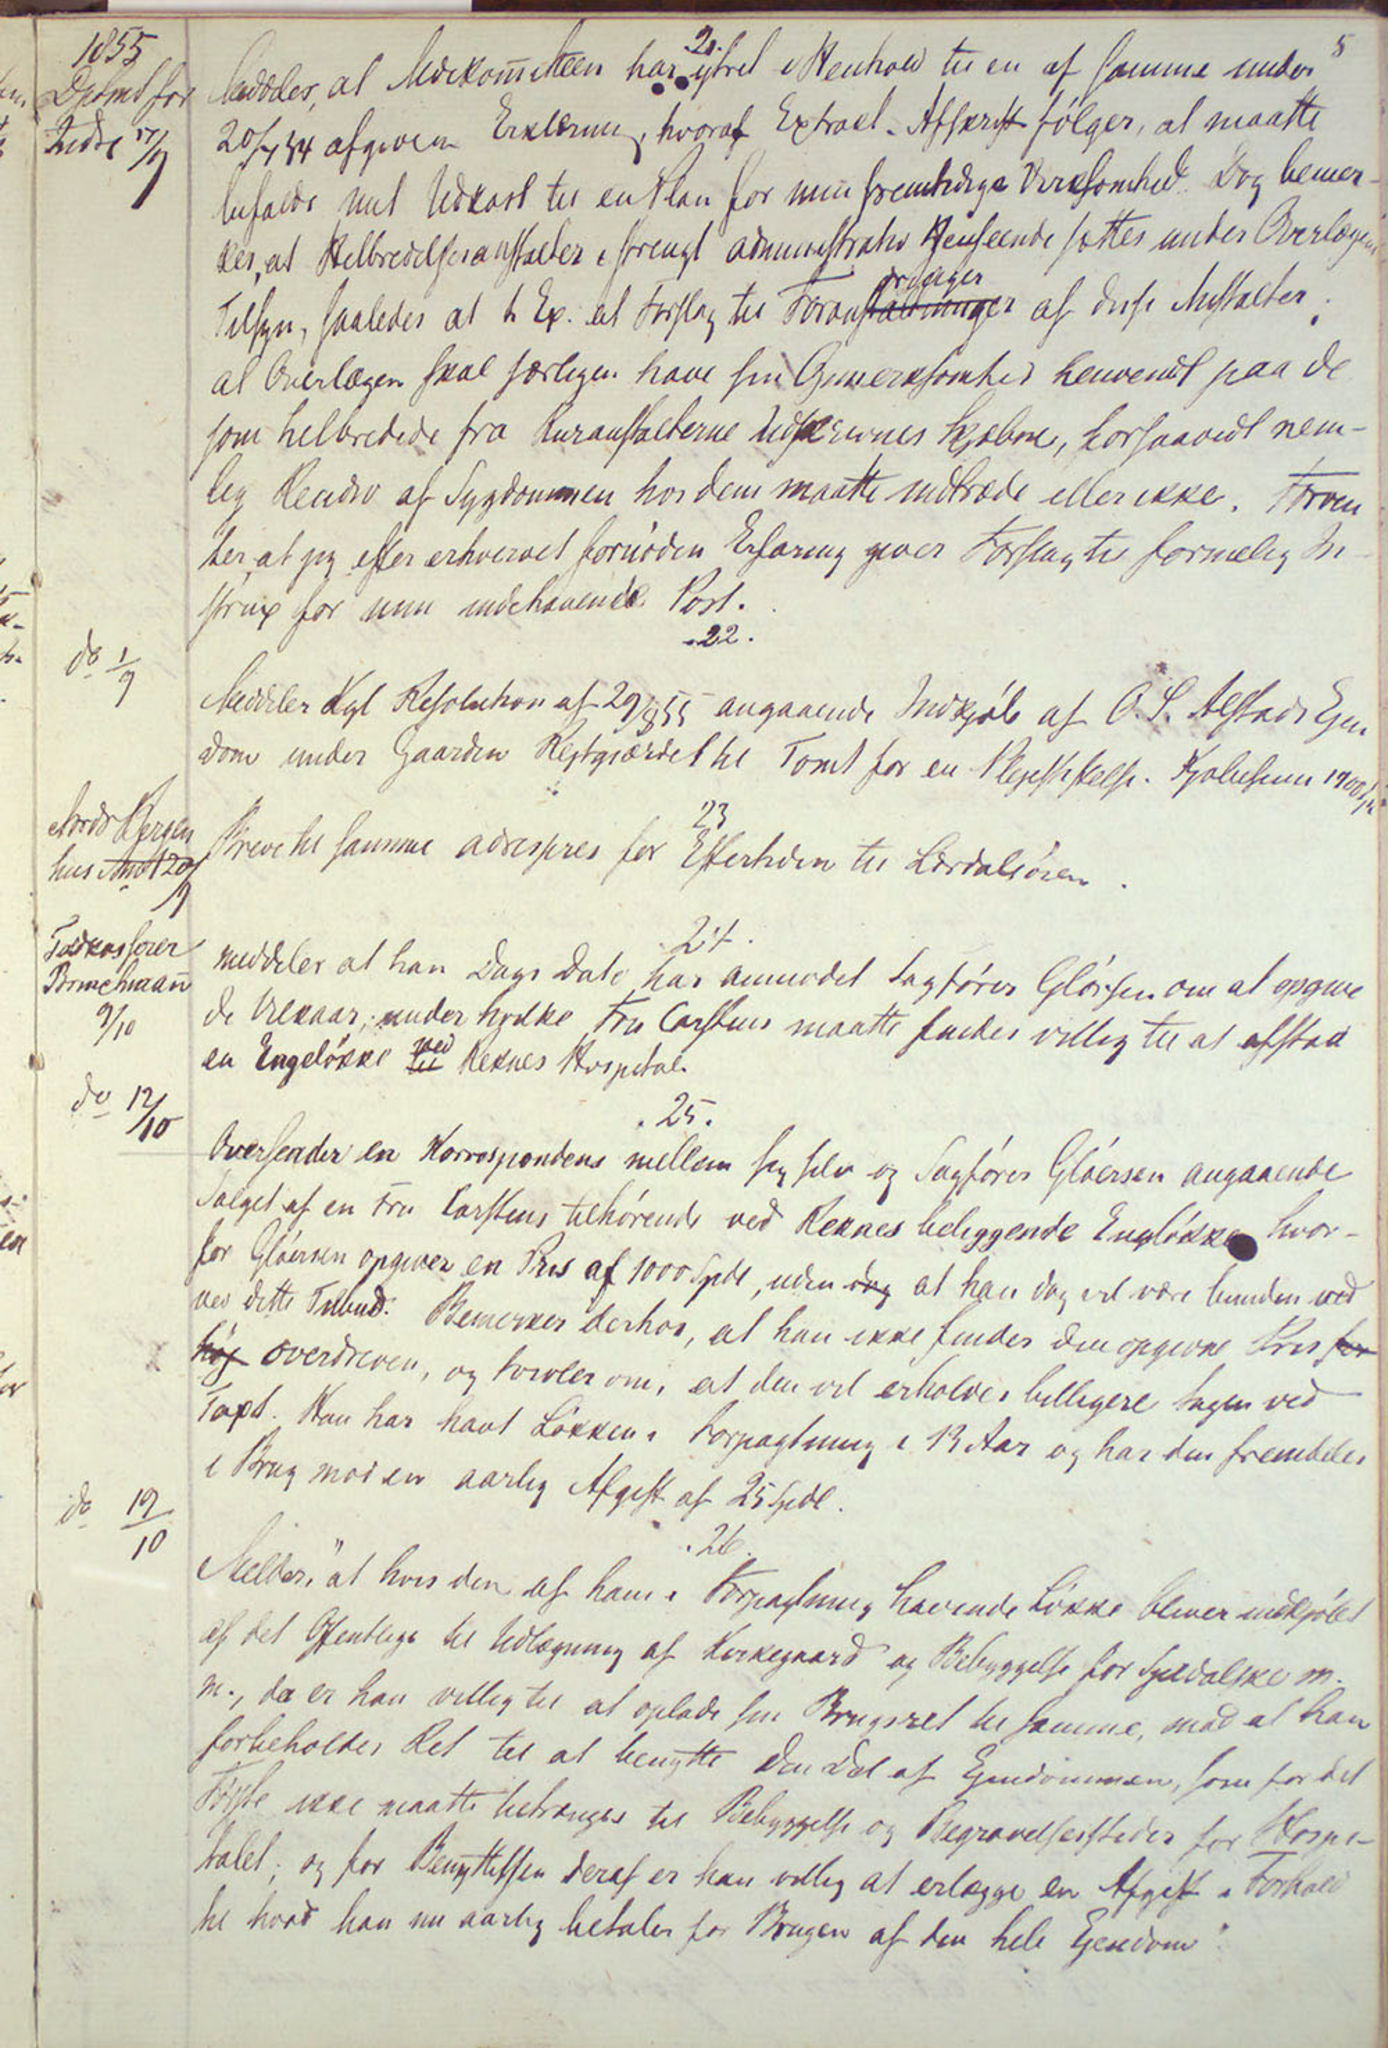 5
1855
Dptmt for
Indre 17/9
21.
Meddeler, at Medicommitteen har ytret i Henhold til en af samme under
20/7 54 afgiven Erklæring, hvoraf Extract-Afskrift følger, at maatte
befale mit Udkast til en Plan for min fremtidige Virksomhed. Dog bemær-
kes, at Helbredelsesanstalter i strengt administrativ Henseende sættes under Overlægens
Tilsyn, saaledes at t. Ex. at Forslag til Foranstaltninger af disse Anstalter.
at Overlægen skal særligen have sin Opmerksomhed henvendt paa de
som helbredede fra Kuranstalterne Udskrevnes Skjæbne, forsaavidt nem-
lig Recidiv af Sygdommen hos dem maatte indtræde eller ikke. Forven
ter, at jeg efter erhvervet fornøden Erfaring giver Forslag til formelig In-
strux for min indehavende Post.
do 1/9
22.
Meddeler Kgl Resolution af 29/8 55 angaaende Indkjøb af O. S. Alstads Ejen
dom under Gaarden til Tomt for en Plejestiftelse. Kjøbesum 1700
Nordre Bergen
hus Amt 20/9
23
Breve til samme adresseres for Eftertiden til Lærdalsøren.
Toldkasserer
9/10
24.
meddeler at han Dags Dato har anmodet Sagfører Gløersen om at opgive
de Vilkaar, under hvilke Fru Carstens maatte findes villig til at afstaa
en Engeløkke til ved Reknes Hospital.
do 12/10
25.
Oversender en Korrespondens mellem sig selv og Sagfører Gløersen angaaende
Salget af en Fru Carstens tilhørende ved Reknes beliggende Engløkke, hvor-
for Gløersen opgiver en Pris af 1000 Spdl, uden dog at han dog vil være bunden ved
ved dette Tilbud. Bemerker derhos, at han ikke finder den opgivne Pris for
høj overdreven, og tvivler om, at den vil erholdes billigere tagen ved
Taxt. Han har havt Løkken i Forpagtning i 13 Aar og har den fremdeles
i Brug mod en aarlig Afgift af 25 Spdl.
do 19/10
26.
Melder, "at hvis den af ham i Forpagtning havende Løkke bliver indkjøbt
af det Offentlige til Udlægning af Kirkegaard og Bebyggelse for Spedalske m.
m., da er han villig til at oplade sin Brugsret til samme, mod at han
forbeholdes Ret til at benytte den Del af Ejendommen, som for det
Første ikke maatte betrænges til Bebyggelse og Begravelsessteder for Hospi-
talet; og for Benyttelsen deraf er han villig at erlægge en Afgift i Forhold
til hvad han nu aarlig betaler for Brugen af den hele Ejendom"